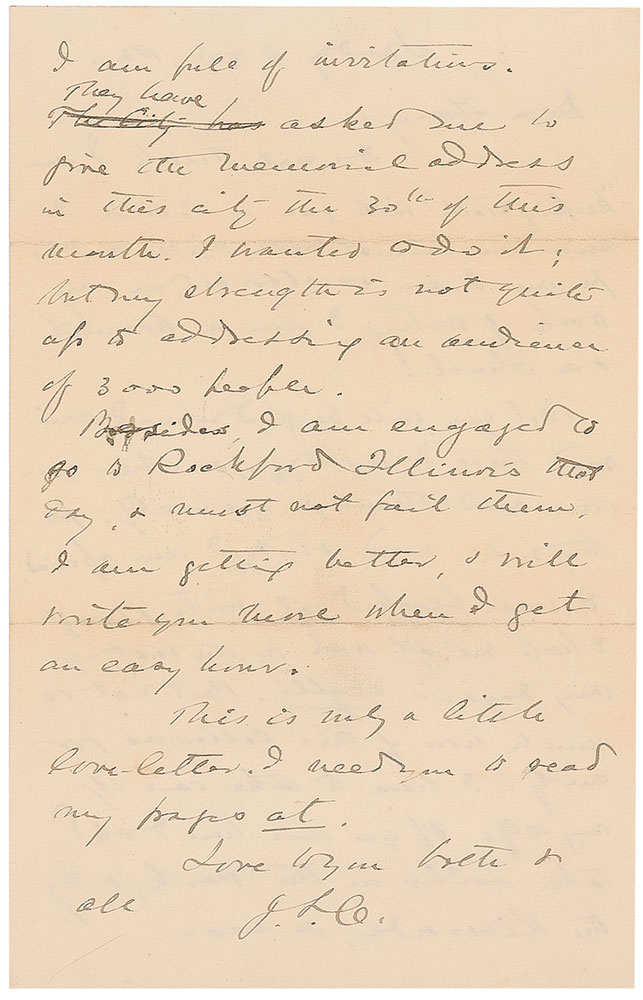 I am full of invitations.
They have
The City has asked me to
give the memorial address
in this city the 30th of this
month. I wanted to do it;
but my strength is not quite
up to addressing an audience
of 3000 people.
Besides, I am engaged to
go to Rockford Illinois that
day, & must not fail them.
I am getting better, & will
write you more when I get
an easy hour.
This is only a little
love-letter. I need you to read
my pages at.
Love to you both &
all J. L. C.